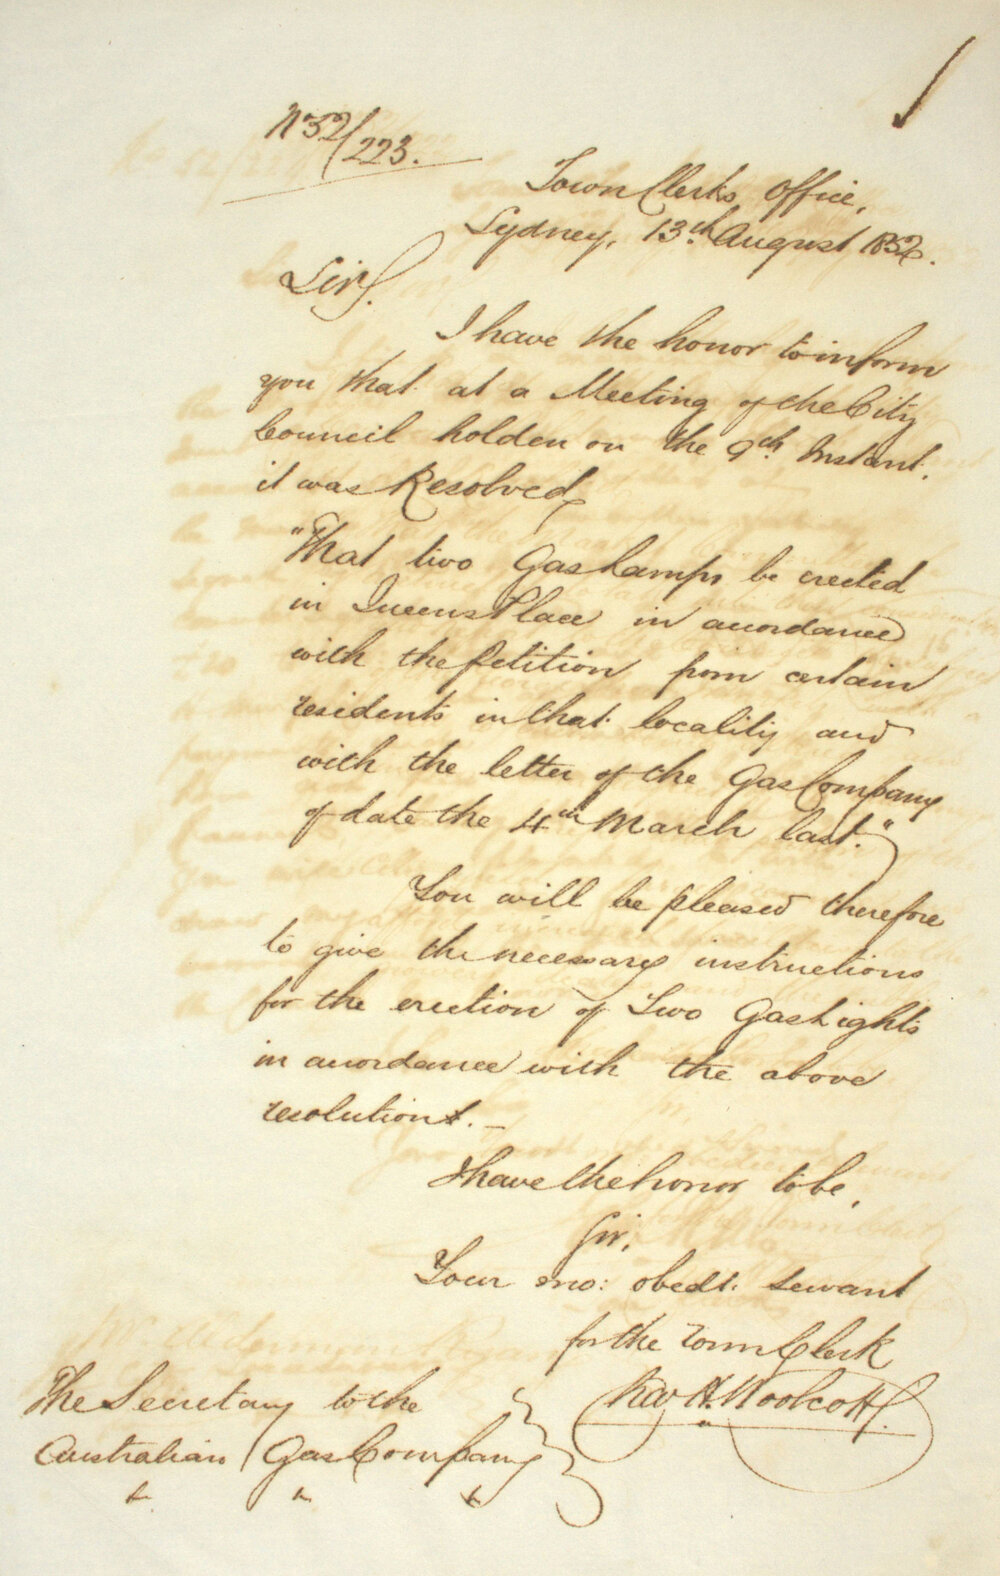 No 52/223.
Town Clerks Office,
Sydney, 13th August 1852.
Sir,
I have the honor to inform
you that at a Meeting of the City
Council holden on the 9th Instant.
it was Resolved,
"That two Gas Lamps be erected
in Queens Place in accordance
with the Petition from certain
residents in that locality and
with the letter of the Gas Company
of date the 4th March last."
You will be pleased therefore
to give the necessary instructions
for the erection of Two Gas Lights
in accordance with the above
resolution.
I have the honor to be,
Sir,
Your mo: obedt. servant
for the Town Clerk
H. Woolcott
The Secretary to the
Australian Gas Company